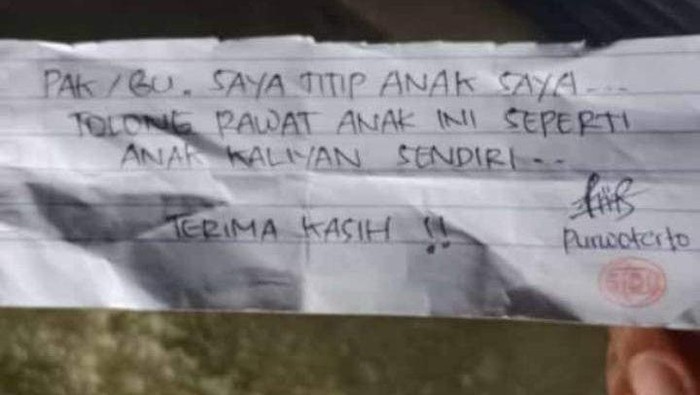 PAK/BU. SAYA TITIP ANAK SAYA...
TOLONG RAWAT ANAK INI SEPERTI
ANAK KALIYAN SENDIRI...
TERIMA KASIH !!
Purwoterto